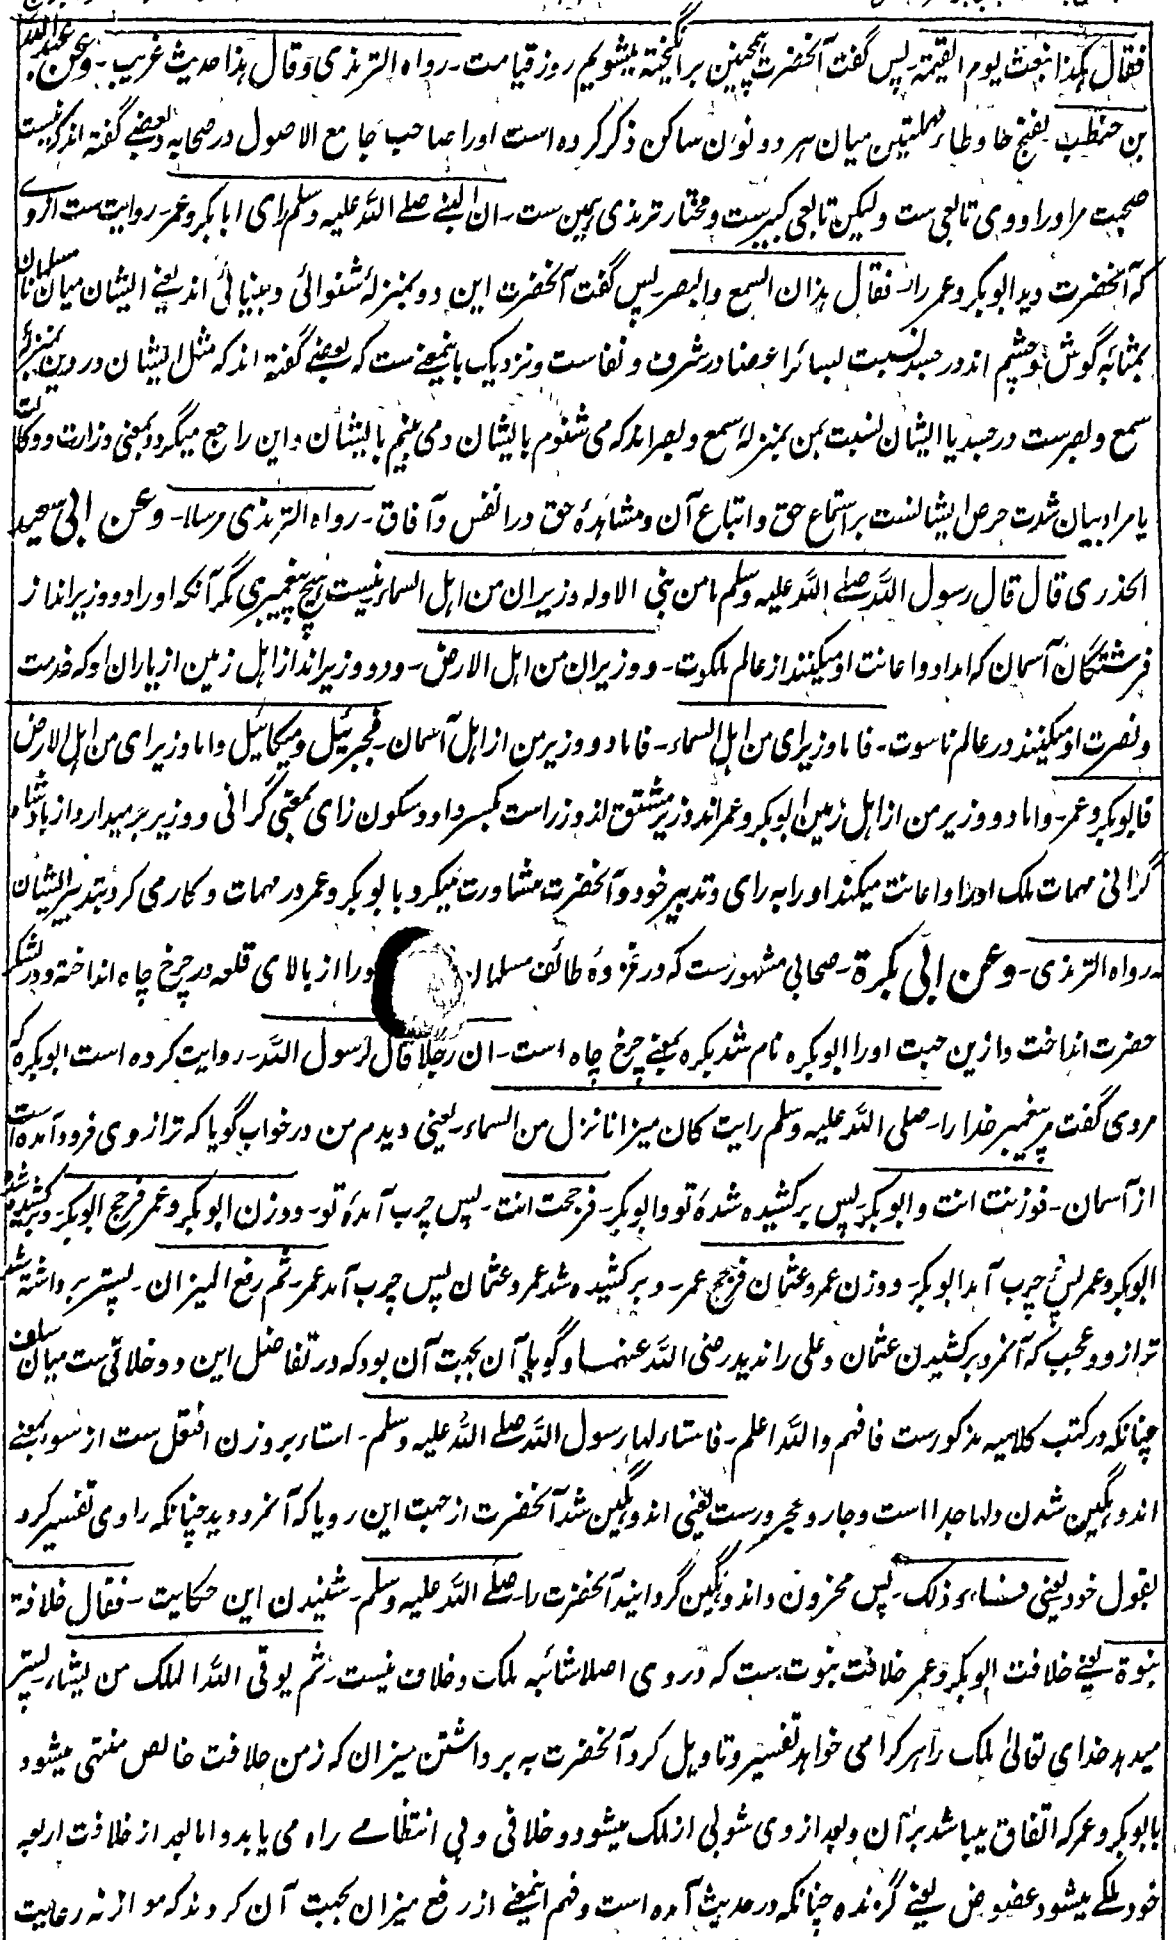 فقال هكذا نبعث يوم القيمة۔ پس گفت آنحضرت همچنین برانگیخته میشویم روز قیامت۔ رواه الترمذی وقال هذا حدیث غریب۔ وعن عبد الله
بن حنطب بفتح حا وطاء مهملتین میان هر دو نون ساکن ذکر کرده است او را صاحب جامع الاصول در صحابه وبعضے گفته اند که نیست
صحبت مر او را ووی تابعی ست ولیکن تابعی کبیرست ومختار ترمذی همین ست۔ ان النبی صلے الله علیه وسلم رای ابا بکر وعمر۔ روایت ست از وے
که آنحضرت دید ابو بکر وعمر را۔ فقال هذان السمع والبصر۔ پس گفت آنحضرت این دو بمنزلهٔ شنوائی وبینائی اند یعنے ایشان میان مسلمانان
بمثابه گوش وچشم اند در جسد نسبت بسائر اعضا در شرف ونفاست ونزدیک باینمعنے ست که بعضے گفته اند که مثل ایشان در دین بمنزلهٔ
سمع وبصرست در جسد یا ایشان نسبت بمن بمنزلهٔ سمع وبصر اند که می شنوم بایشان ومی بینم بایشان واین راجع میگردد بمعنی وزارت ووکالت
یا مراد بیان شدت حرص ایشانست بر استماع حق واتباع آن ومشاهدهٔ حق در انفس وآفاق۔ رواه الترمذی مرسلا۔ وعن ابی سعید
الخدری قال قال رسول الله صلے الله علیه وسلم ما من نبی الا وله وزیران من اهل السماء۔ نیست هیچ پیغمبری مگر آنکه او را دو وزیر اند از
فرشتگان آسمان که امداد واعانت او میکنند از عالم ملکوت۔ ووزیران من اهل الارض۔ ودو وزیر اند از اهل زمین از یاران او که خدمت
ونصرت او میکنند در عالم ناسوت۔ فاما وزیرای من اهل السماء۔ فاما دو وزیر من از اهل آسمان۔ فجبرئیل ومیکائیل واما وزیرای من اهل الارض
فابو بکر وعمر۔ واما دو وزیر من از اهل زمین ابو بکر وعمر اند وزیر مشتق از وزر است بکسر واو وسکون زای بمعنی گرانی ووزیر بر میدارد از بادشاه
گرانی مهمات ملک او را واعانت میکند او را به رای وتدبیر خود وآنحضرت مشاورت میکرد با ابو بکر وعمر در مهمات وکار می کرد بتدبیر ایشان
رواه الترمذی۔ وعن ابی بکرة۔ صحابی مشهورست که در غزوهٔ طائف مسلمان ورا از بالای قلعه در چرخ چاه انداخته ودر لشکر
حضرت انداخت وازین جهت او را ابو بکره نام شد بکره بمعنے چرخ چاه است۔ ان رجلا قال لرسول الله۔ روایت کرده است ابو بکره که
مردی گفت مر پیغمبر خدا را۔ صلی الله علیه وسلم رایت کان میزانا نزل من السماء۔ یعنی دیدم من در خواب گویا که ترازوی فرود آمده است
از آسمان۔ فوزنت انت وابو بکر۔ پس بر کشیده شدهٔ تو وابو بکر۔ فرجحت انت۔ پس چرب آمدهٔ تو۔ ووزن ابو بکر وعمر فرجح ابو بکر۔ وبرکشیده شد
ابو بکر وعمر پس چرب آمد ابو بکر۔ ووزن عمر وعثمان فرجح عمر۔ وبر کشیده شد عمر وعثمان پس چرب آمد عمر۔ ثم رفع المیزان۔ پستر برداشته شد
ترازو وعجب که آنمرد بر کشیدن عثمان وعلی را ندید رضی الله عنهما وگویا آن بجهت آن بود که در تفاضل این دو خلافی ست میان سلف
چنانکه در کتب کلامیه مذکورست فافهم والله اعلم۔ فاستاء لها رسول الله صلے الله علیه وسلم۔ استاء بر وزن افتعل ست از سوء بمعنے
اندوهگین شدن ولها جدا است وجار ومجرورست یعنی اندوهگین شد آنحضرت از جهت این رویا که آنمرد دید چنانکه راوی تفسیر کرد
بقول خود یعنی فساءه ذلک۔ پس محزون واندوهگین گردانید آنحضرت را۔ صلے الله علیه وسلم۔ شنیدن این حکایت۔ فقال خلافة
نبوة یعنے خلافت ابو بکر وعمر خلافت نبوت ست که در وی اصلا شائبه ملک وخلاف نیست۔ ثم یوتی الله الملک من یشاء۔ پستر
میدهد خدای تعالیٰ ملک را هر کرا می خواهد تفسیر وتاویل کرد آنحضرت به برداشتن میزان که زمن خلافت خالص منتهی میشود
با ابو بکر وعمر که اتفاق میباشد بر آن وبعد از وی شوبی از ملک میشود وخلافی وبی انتظامے راه می یابد واما بعد از خلافت اربعه
خود ملکے میشود عضوض یعنے گزنده چنانکه در حدیث آمده است وفهم اینمعنے از رفع میزان بجهت آن کردند که موازنه رعایت